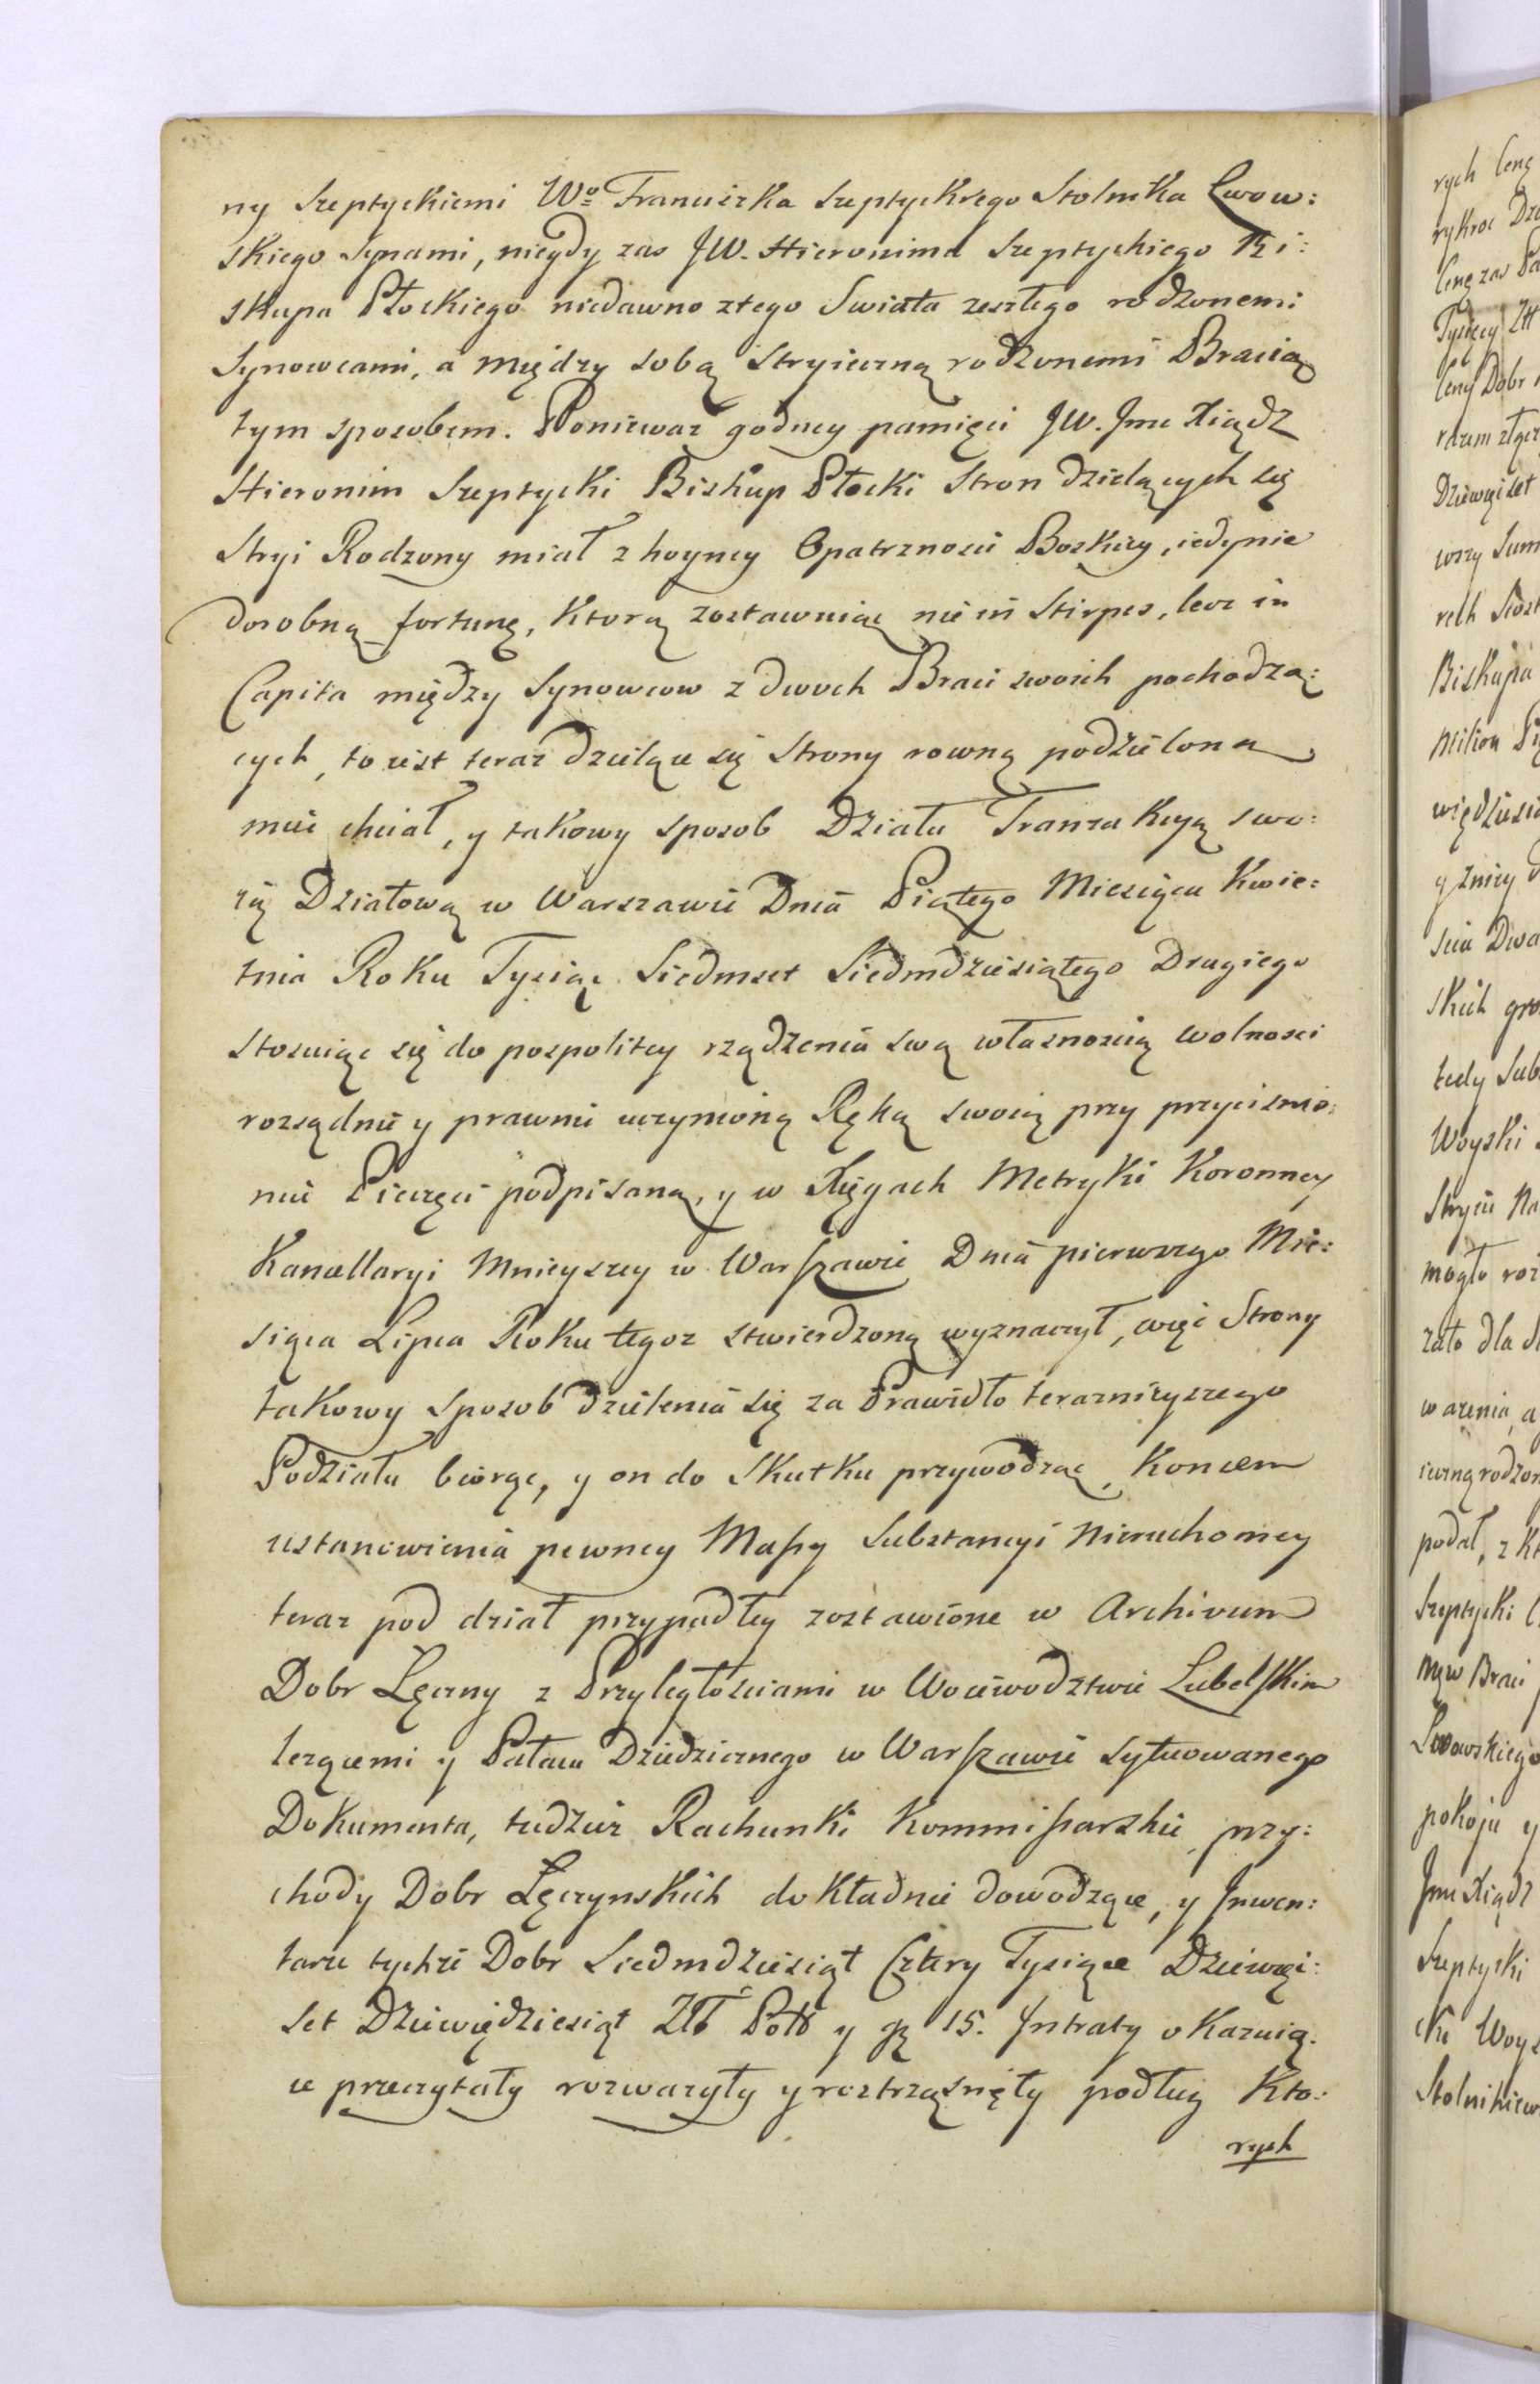 ny Szeptyckiemi Wo Franciszka Szeptyckiego Stolnika Lwow:
skiego Synami, niegdy zas JW. Hieronima Szeptyckiego Bi:
skupa Płockiego niedawno ztego Swiata zeszłego rodzonemi
Synowcami, a między sobą Stryieczną rodzonemi Bracią
tym sposobem. Poniewaz godney pamięci JW. Jmc Xiądz
Hieronim Szeptycki Biskup Płocki Stron dzielących się
Stryi Rodzony miał z hoyney Opatrznosci Boskiey, iedynie
dorobną fortunę, Ktorą zostawuiąc nie in Stirpes, lecz in
Capita między Synowcow z dwoch Braci swoich pochodzą:
cych, to iest teraz dzielące się Strony rowną podzielona
miec chciał, y takowy sposob Działu Tranzakcyą swo:
ią Działową w Warszawie Dnia Piątego Miesiąca Kwie:
tnia Roku Tysiąc Siedmset Siedmdziesiątego Drugiego
stosuiąc się do pospolitey rządzenia swą własnoscią wolnosci
rozsądnie y prawnie uczynioną Ręką swoią przy przycisnie:
niu Pieczęci podpisaną, y w Xięgach Metryki Koronney
Kancellaryi Mnieyszey w Warszawie Dnia pierwszego Mie:
siąca Lipca Roku tegoz stwierdzoną wyznaczył, więc Strony
takowy sposob dzielenia się za Prawidło teraznieyszego
Podziału biorąc, y on do Skutku przywodząc, Koncem
ustanowienia pewney Massy Substancyi Nieruchomey
teraz pod dział przypadłey zostawione w Archivum
Dobr Łęczny z Przyległosciami w Woiewodztwie Lubelskim
lezącemi y Pałacu Dziedzicznego w Warszawie sytuowanego
Dokumenta, tudziez Rachunki Kommissarskie przy:
chody Dobr Łęczynskich dokładnie dowodzące, y Inwen:
tarze tychze Dobr Siedmdziesiąt Cztery Tysiące Dziewięc:
set Dziewiędziesiąt Złł Poll y gr 15. Intraty okazuią:
ce przeczytały rozwazyły y roztrząsnęły podług Kto:
rych
rych
rykroc
Biskupa
Woyski
mogło
zało dla
wazenia, a
podał, z
Szeptycki
Lwowskiego
pokoju y
Jmc Xiądz
Szeptycki